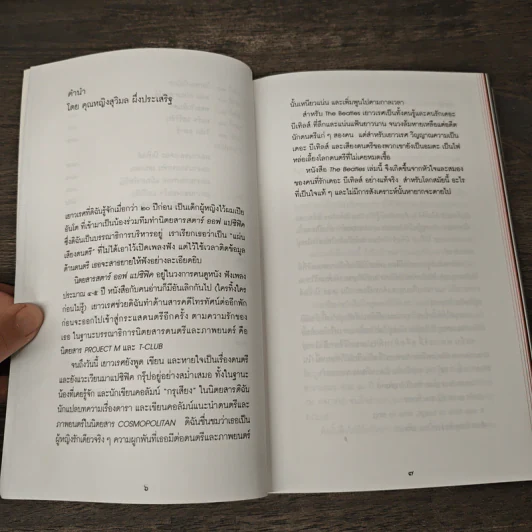 คำนำ
โดย คุณหญิงสุวิมล ผึ่งประเสริฐ
เยาวเรศที่ดิฉันรู้จักเมื่อกว่า ๒๐ ปีก่อน เป็นเด็กผู้หญิงไว้ผมเปีย
ที่เข้ามาเป็นน้องร่วมทีมทำนิตยสารสตาร์ ออฟ แปซิฟิค
ซึ่งดิฉันเป็นบรรณาธิการบริหารอยู่ เราเรียกเธอว่าเป็น "แผ่น
เสียงดนตรี" ที่ไม่ได้เอาไว้เปิดเพลงฟัง แต่ไว้ใช้เวลาติดข้อมูล
ด้านดนตรี เธอจะสาธยายให้ฟังอย่างละเอียดยิบ
นิตยสารสตาร์ ออฟ แปซิฟิค อยู่ในวงการคนดูหนัง ฟังเพลง
ประมาณ ๔-๕ ปี หนังสือกับคนอ่านก็มีอันเลิกกันไป (ใครทิ้งใคร
ก่อนไม่รู้) เยาวเรศช่วยดิฉันทำด้านสารคดีโทรทัศน์ต่ออีกพัก
ก่อนจะออกไปเข้าสู่กระแสดนตรีอีกครั้ง ตามความรักของ
เธอ ในฐานะบรรณาธิการนิตยสารดนตรีและภาพยนตร์ คือ
นิตยสาร PROJECT M และ T-CLUB
จนถึงวันนี้ เยาวเรศยังพูด เขียน และหายใจเป็นเรื่องดนตรี
และยังแวะเวียนมาแปซิฟิค กรุ๊ปอยู่อย่างสม่ำเสมอ ทั้งในฐานะ
น้องที่เคยรู้จัก และนักเขียนคอลัมน์ "กรุเสียง" ในนิตยสารดิฉัน
นักแปลบทความเรื่องดารา และเขียนคอลัมน์แนะนำดนตรีและ
ภาพยนตร์ในนิตยสาร COSMOPOLITAN ดิฉันชื่นชมว่าเธอเป็น
ผู้หญิงรักเดียวจริง ๆ ความผูกพันที่เธอมีต่อดนตรีและภาพยนตร์
๖
นั้นเหนียวแน่น และเพิ่มพูนไปตามกาลเวลา
สำหรับ The Beatles เยาวเรศเป็นทั้งคนรู้และคนรักเดอะ
บีเทิลส์ ที่ลึกและแน่นแฟ้นยาวนาน
นักดนตรีแก่ ๆ สองคน แต่สำหรับเยาวเรศ วิญญาณความเป็น
เดอะ บีเทิลส์ และเสียงดนตรีของพวกเขายังเป็นอมตะ เป็นไฟ
หล่อเลี้ยงโลกดนตรีที่ไม่เคยหมดเชื้อ
หนังสือ The Beatles เล่มนี้ จึงเกิดขึ้นจากหัวใจและสมอง
ของคนที่รักเดอะ บีเทิลส์ อย่างแท้จริง สำหรับโลกสมัยนี้ อะไร
ที่เป็นใจแท้ ๆ และไม่มีการสังเคราะห์นั้นหายากจะตายไป
๗